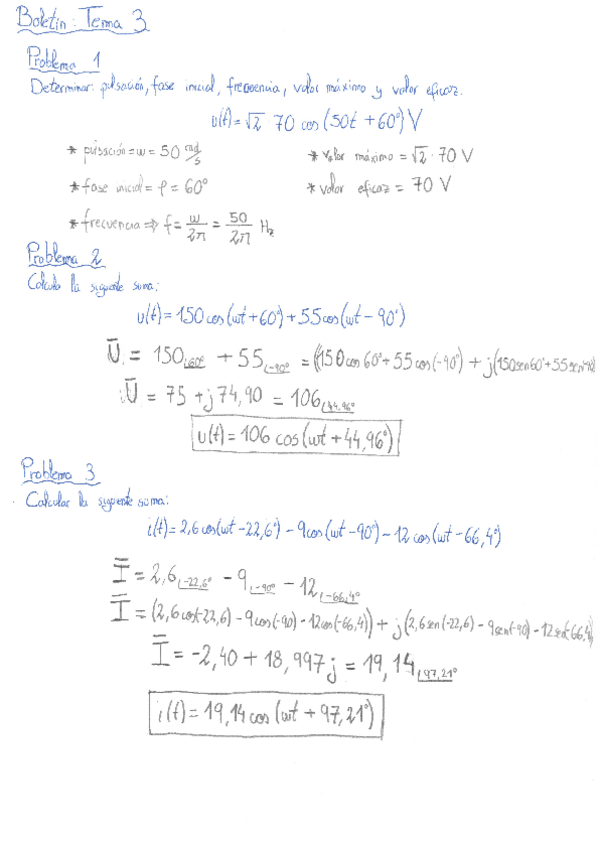 Boletín: Tema 3
Problema 1
Determinar: pulsación, fase inicial, frecuencia, valor máximo y valor eficaz.
u(t) = √2 70 cos (50t + 60°) V
* pulsación = w = 50 rad/s
* valor máximo = √2 · 70 V
* fase inicial = φ = 60°
* valor eficaz = 70 V
* frecuencia ⇒ f = w/2π = 50/2π Hz
Problema 2
Calcula la siguiente suma:
u(t) = 150 cos(wt + 60°) + 55 cos(wt - 90°)
U = 150 60° + 55 -90° = (150 cos 60° + 55 cos(-90°) + j(150 sen 60° + 55 sen
U = 75 + j 74,90 = 106 44,96°
u(t) = 106 cos (wt + 44,96°)
Problema 3
Calcular la siguiente suma:
i(t) = 2,6 cos(wt - 22,6°) - 9 cos(wt - 90°) - 12 cos(wt - 66,4°)
I = 2,6 -22,6° - 9 -90° - 12 -66,4°
I = (2,6 cos(-22,6) - 9 cos(-90) - 12 cos(-66,4)) + j(2,6 sen(-22,6) - 9 sen(-90) - 12 sen(-66,4)
I = -2,40 + 18,997 j = 19,14 97,21°
i(t) = 19,14 cos (wt + 97,21°)